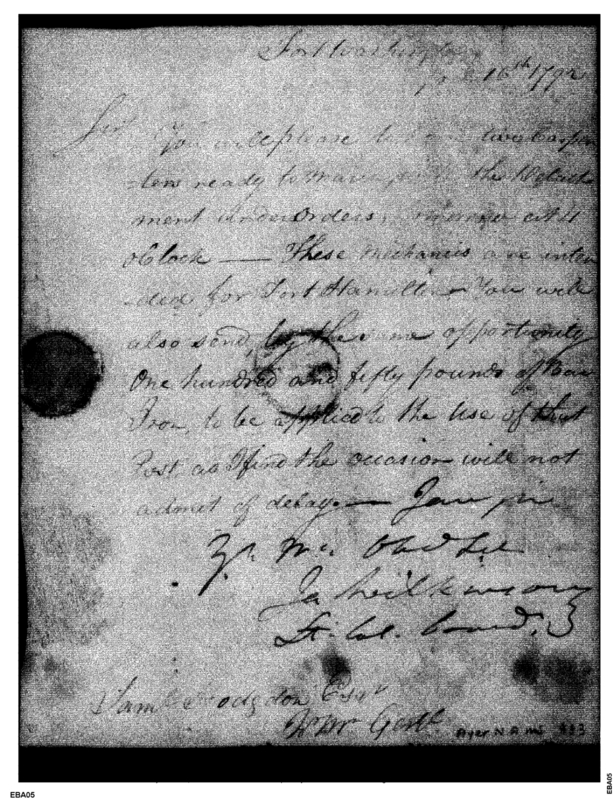 Fort Washington
16th 1792
Sir
You will please to two Carpen
-ters ready to the Detach
ment under orders, at 4
oClock — These mechanics are inten
-ded for Fort Hamilton You will
also send, by the same opportunity
One hundred and fifty pounds of Barr
Iron, to be applied to the Use of that
Post as I find the occasion will not
admit of delay — I am Sir
Yr. Mo. Obed Set
Ja Wilkinson
Lt. Col. Comd.
Saml Hodgdon Esqr
Qr Mr Genl.
Ayer N.A. ms 883
EBA05
EBA05